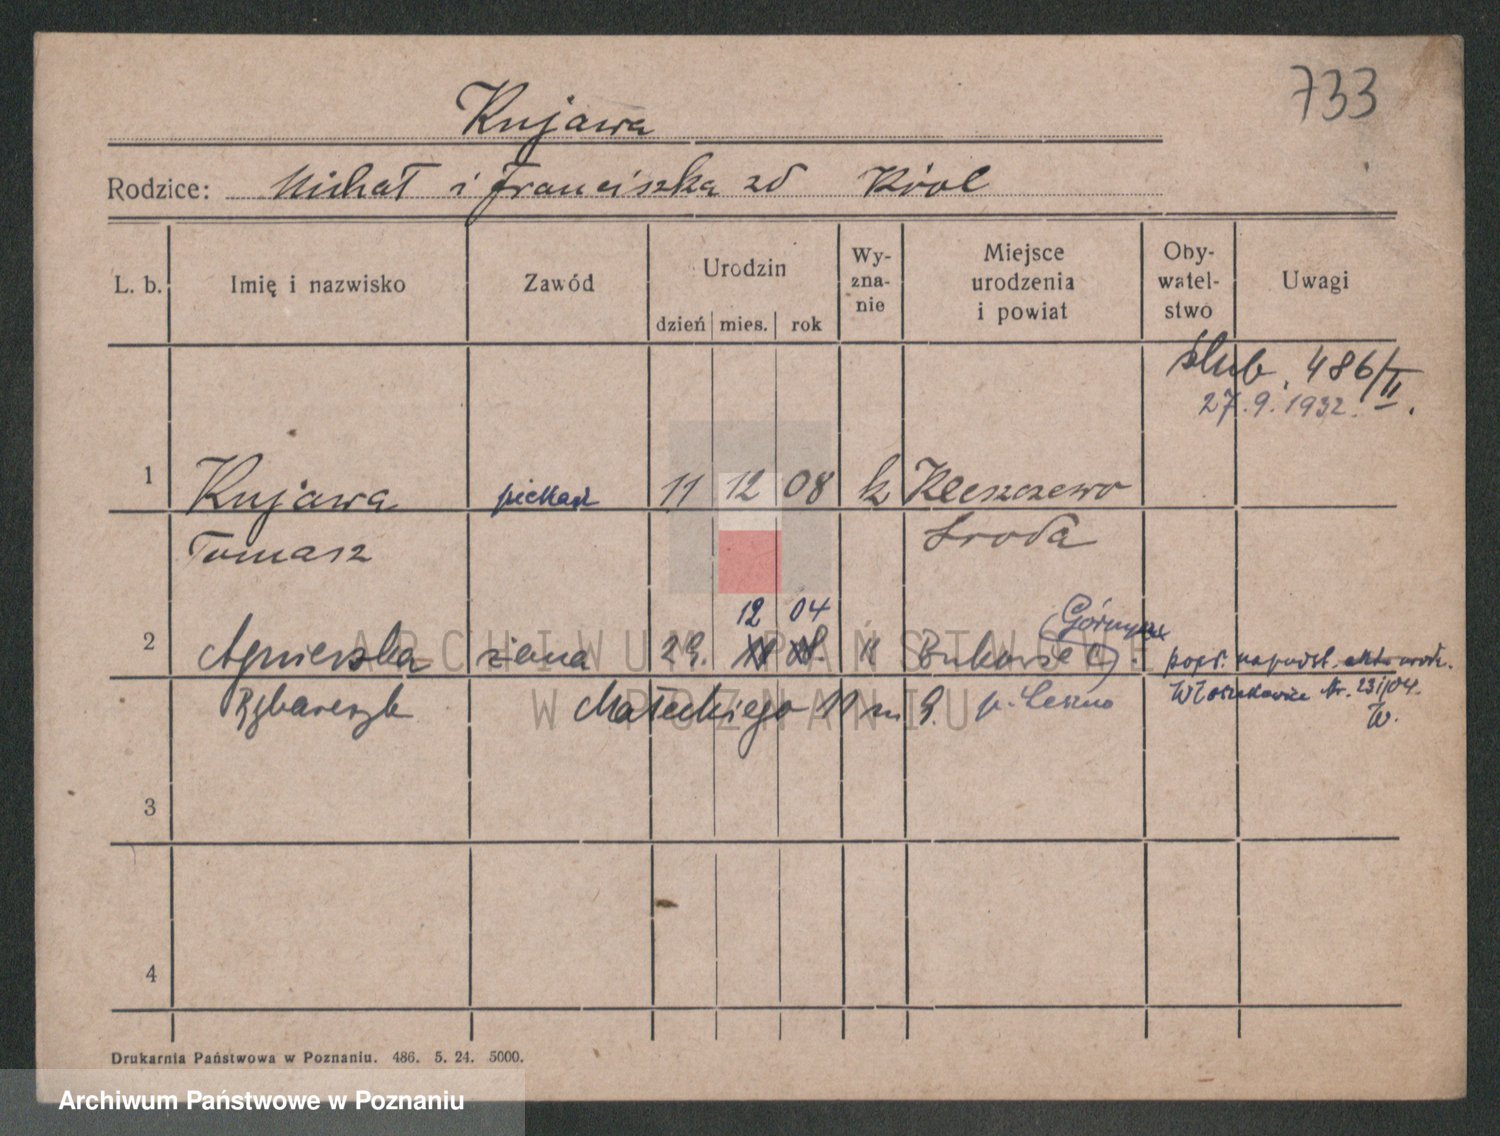 733
Kujawa
Rodzice: Michał i Franciszka zd Król
L. b. Imię i nazwisko Zawód Urodzin dzień mies. rok Wy-zna-nie Miejsce urodzenia i powiat Oby-watel-stwo Uwagi
ślub. 486/II.
27.9.1932.
1 Kujawa piekarz 11 12 08 k Kleszczewo
Tomasz Środa
12 04 Górny
2 Agnieszka żona 29. k Bukowiec
popr. na podst. aktu urodz.
Rybarczyk Małeckiego 11 m 9. p. Leszno Włoszakowice Nr. 231/04.
W.
3
4
Drukarnia Państwowa w Poznaniu. 486. 5. 24. 5000.
ARCHIWUM PAŃSTWOWE
W POZNANIU
Archiwum Państwowe w Poznaniu